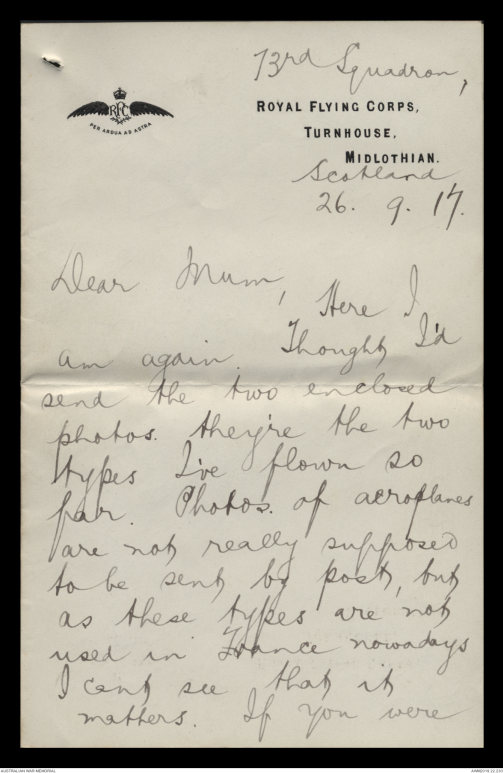 73rd Squadron,
RFC
PER ARDUA AD ASTRA
ROYAL FLYING CORPS,
TURNHOUSE,
MIDLOTHIAN.
Scotland
26. 9. 17.
Dear Mum,
Here I
am again. Thought I'd
send the two enclosed
photos. they're the two
types I've flown so
far. Photos. of aeroplanes
are not really supposed
to be sent by post, but
as these types are not
used in France nowadays
I cant see that it
matters. If you were
AUSTRALIAN WAR MEMORIAL